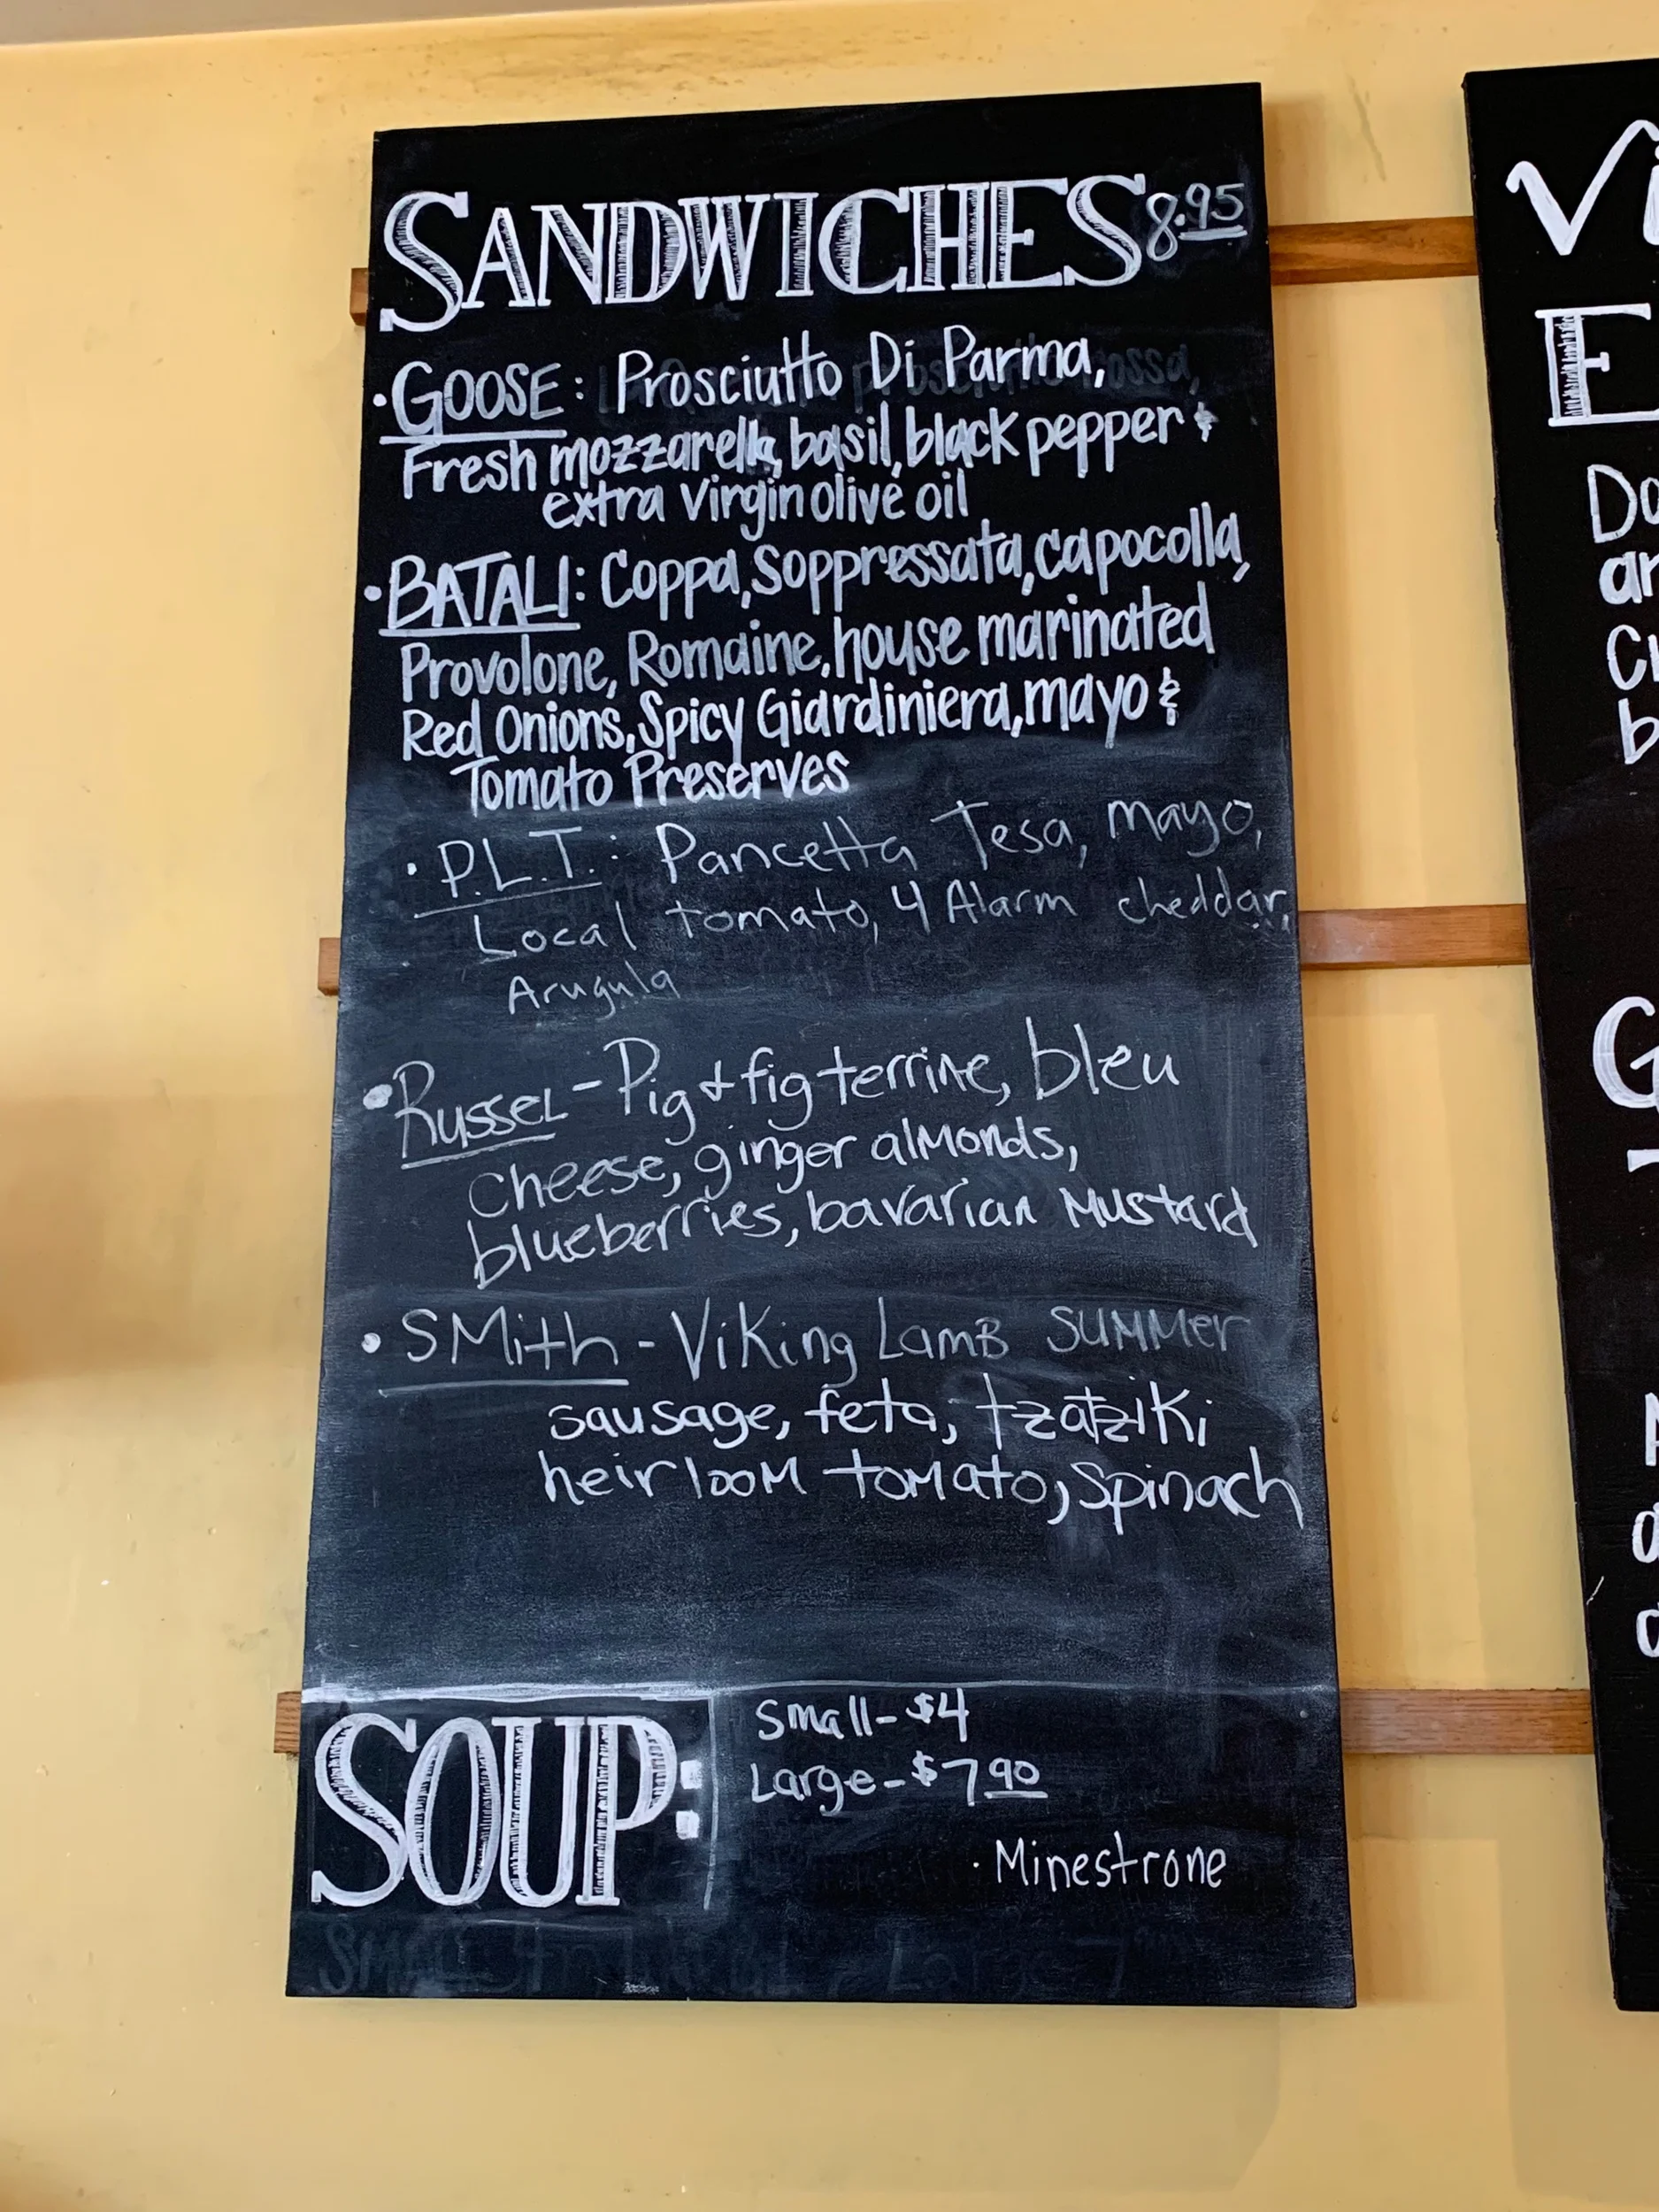 SANDWICHES 8.95
• GOOSE: Prosciutto Di Parma,
Fresh mozzarella, basil, black pepper &
extra virgin olive oil
• BATALI: Coppa, Soppressata, capocolla,
Provolone, Romaine, house marinated
Red Onions, Spicy Giardiniera, mayo &
Tomato Preserves
• P.L.T.: Pancetta Tesa, mayo,
Local tomato, 4 Alarm cheddar,
Arugula
• Russel - Pig & fig terrine, bleu
cheese, ginger almonds,
blueberries, bavarian Mustard
• SMith - Viking LamB SUMMer
sausage, feta, tzatziki
heirlooM toMato, spinach
SOUP:
Small - $4
Large - $7.90
• Minestrone
Vi
E
Do
ar
Ch
b
G